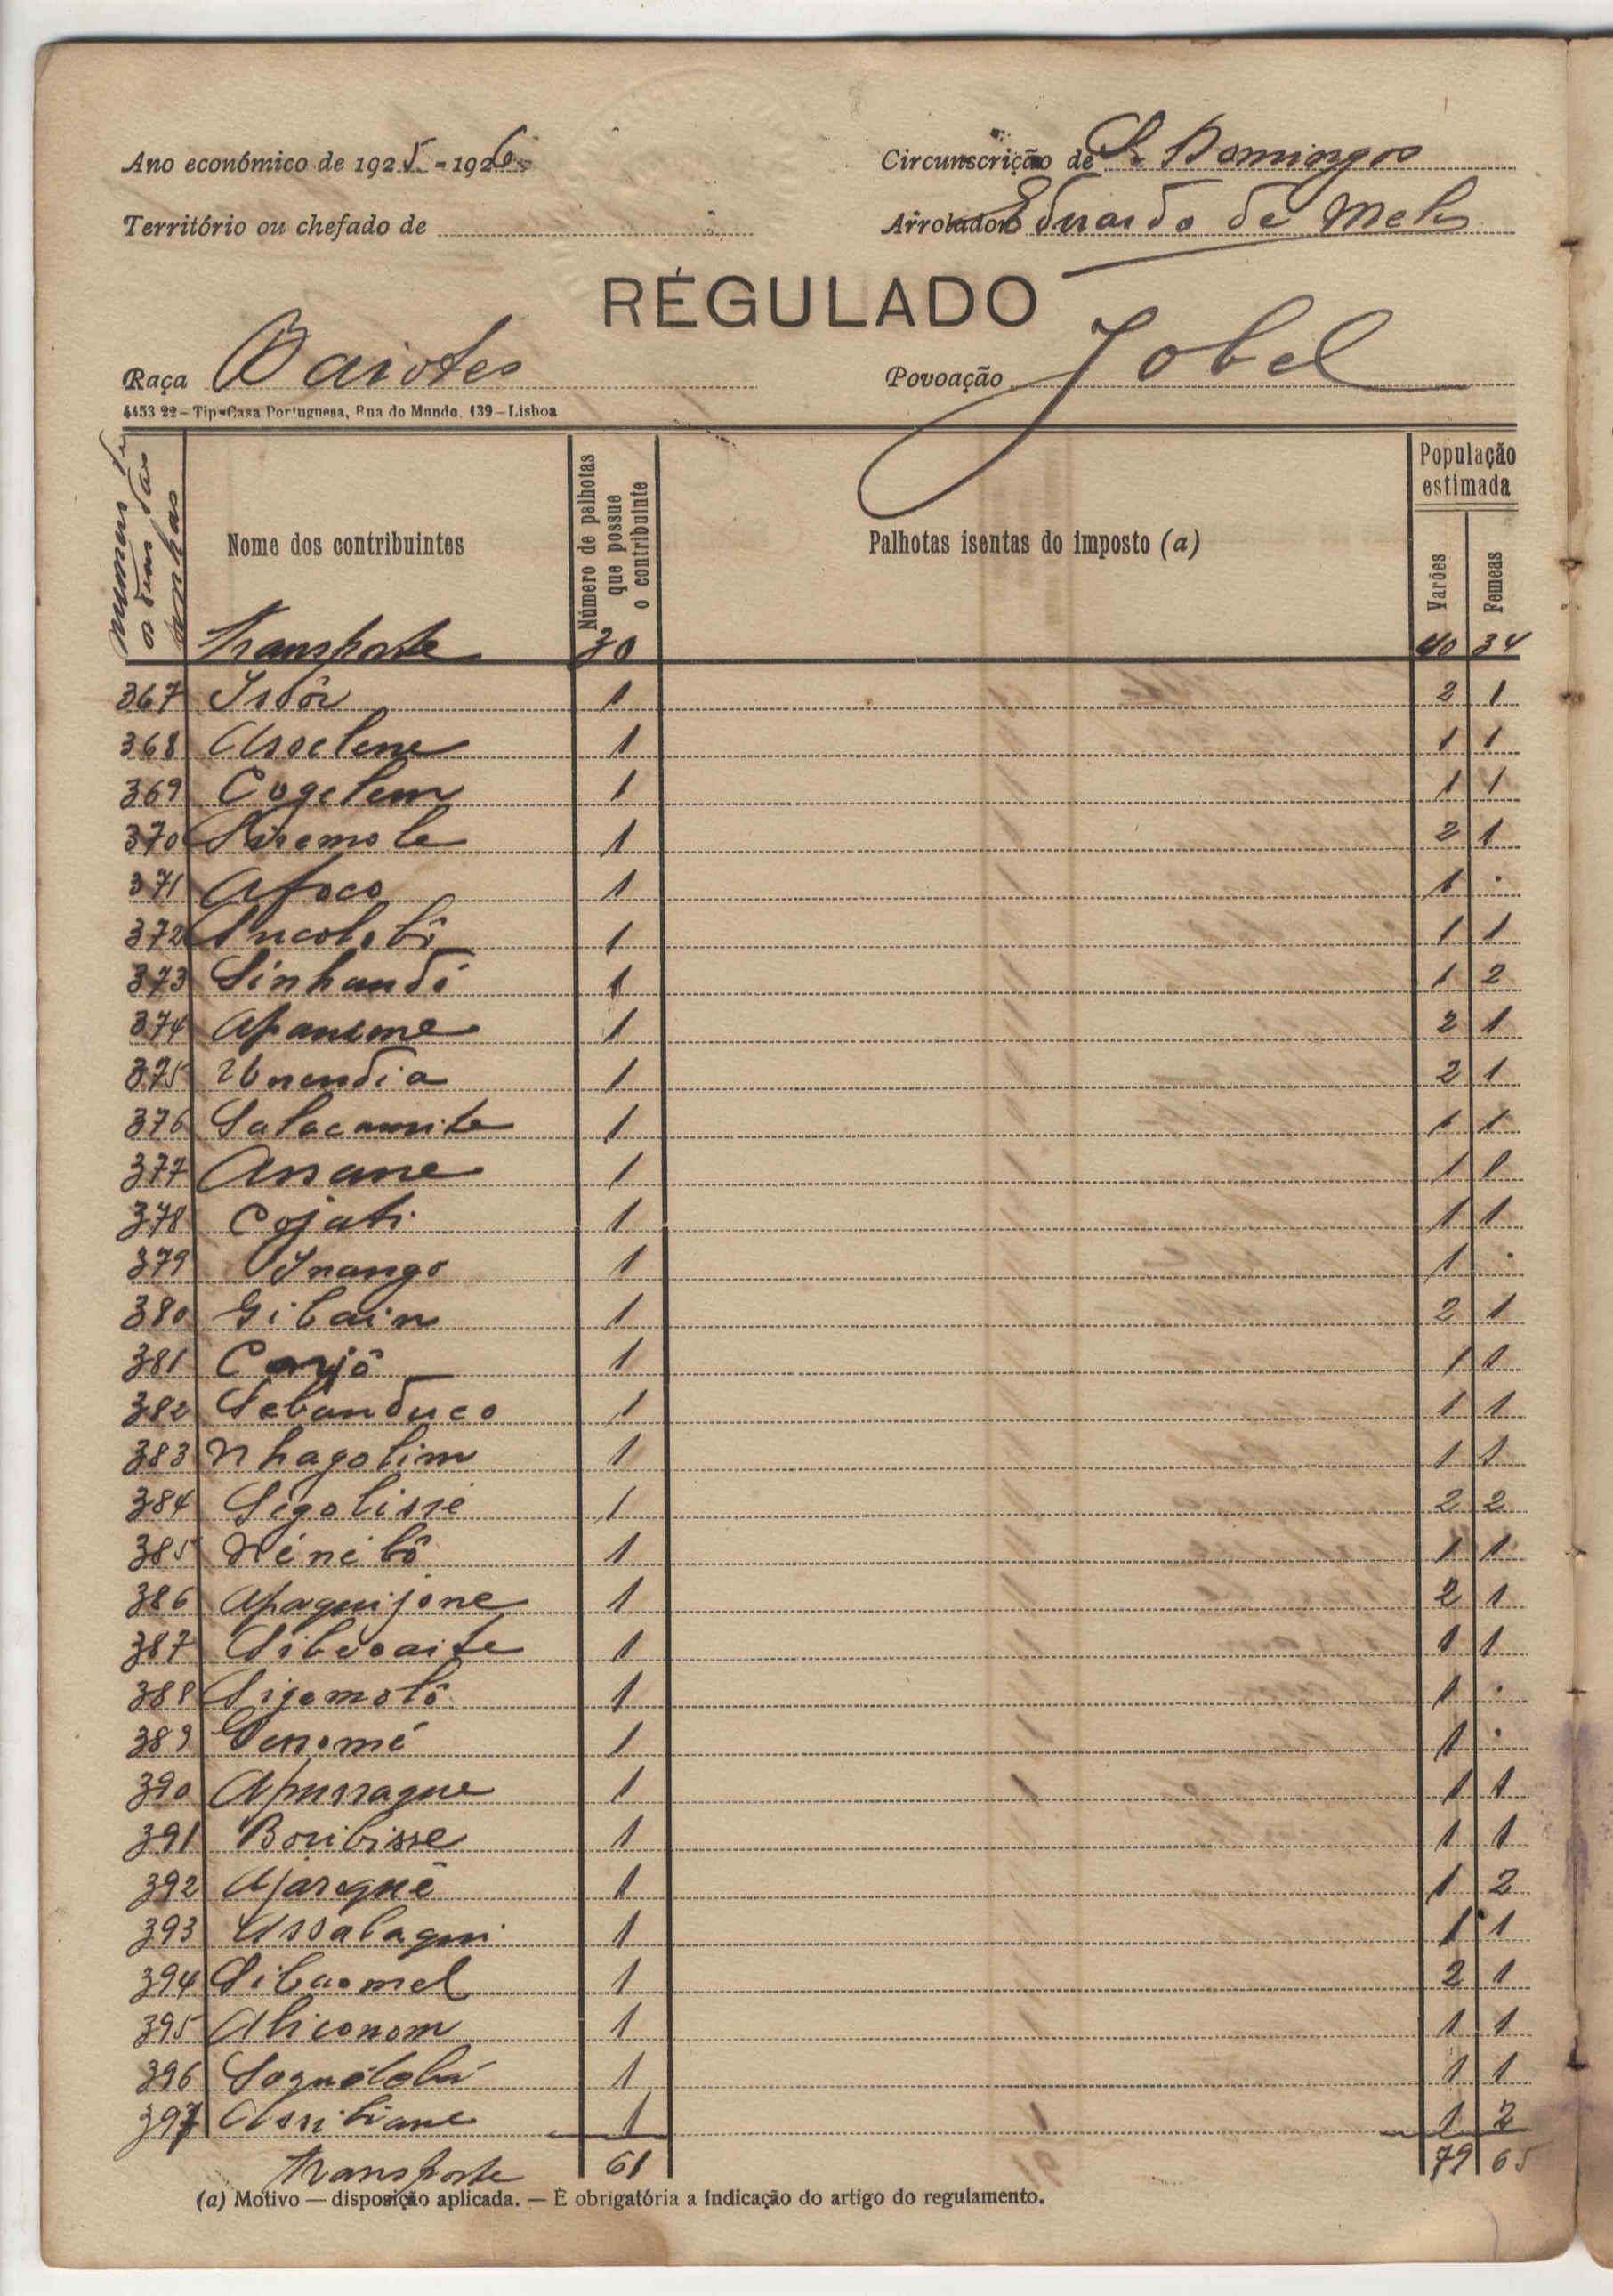 Ano económico de 1925-1926
Circunscrição de S. Domingos
Território ou chefado de
Arrolador Eduardo de Melo
RÉGULADO
Raça Baiotes
Povoação Jobel
4453 22 – Tip. Casa Portuguesa, Rua do Mundo, 139 – Lisboa
Nome dos contribuintes
Número de palhotas que possue o contribuinte
Palhotas isentas do imposto (a)
População estimada
Varões
Femeas
Transporte 30 40 34
367 1 2 1
368 Asselene 1 1 1
369 Cogelem 1 1 1
370 Siremole 1 2 1
371 Afoco 1 1 .
372 1 1 1
373 Sinhandi 1 1 2
374 Apaneme 1 2 1
375 Unendia 1 2 1
376 1 1 1
377 Assane 1 1 1
378 Cojati 1 1 1
379 Inango 1 1 .
380 Gibain 1 2 1
381 1 1 1
382 Sebanduco 1 1 1
383 Nhagolim 1 1 1
384 Sigolissé 1 2 2
385 1 1 1
386 Apaquijone 1 2 1
387 1 1 1
388 1 1 .
389 1 1 .
390 1 1 1
391 Boribisse 1 1 1
392 1 1 2
393 Assalaqui 1 1 1
394 1 2 1
395 Aliconom 1 1 1
396 1 1 1
397 1 1 2
Transporte 61 79 65
(a) Motivo — disposição aplicada. — É obrigatória a indicação do artigo do regulamento.